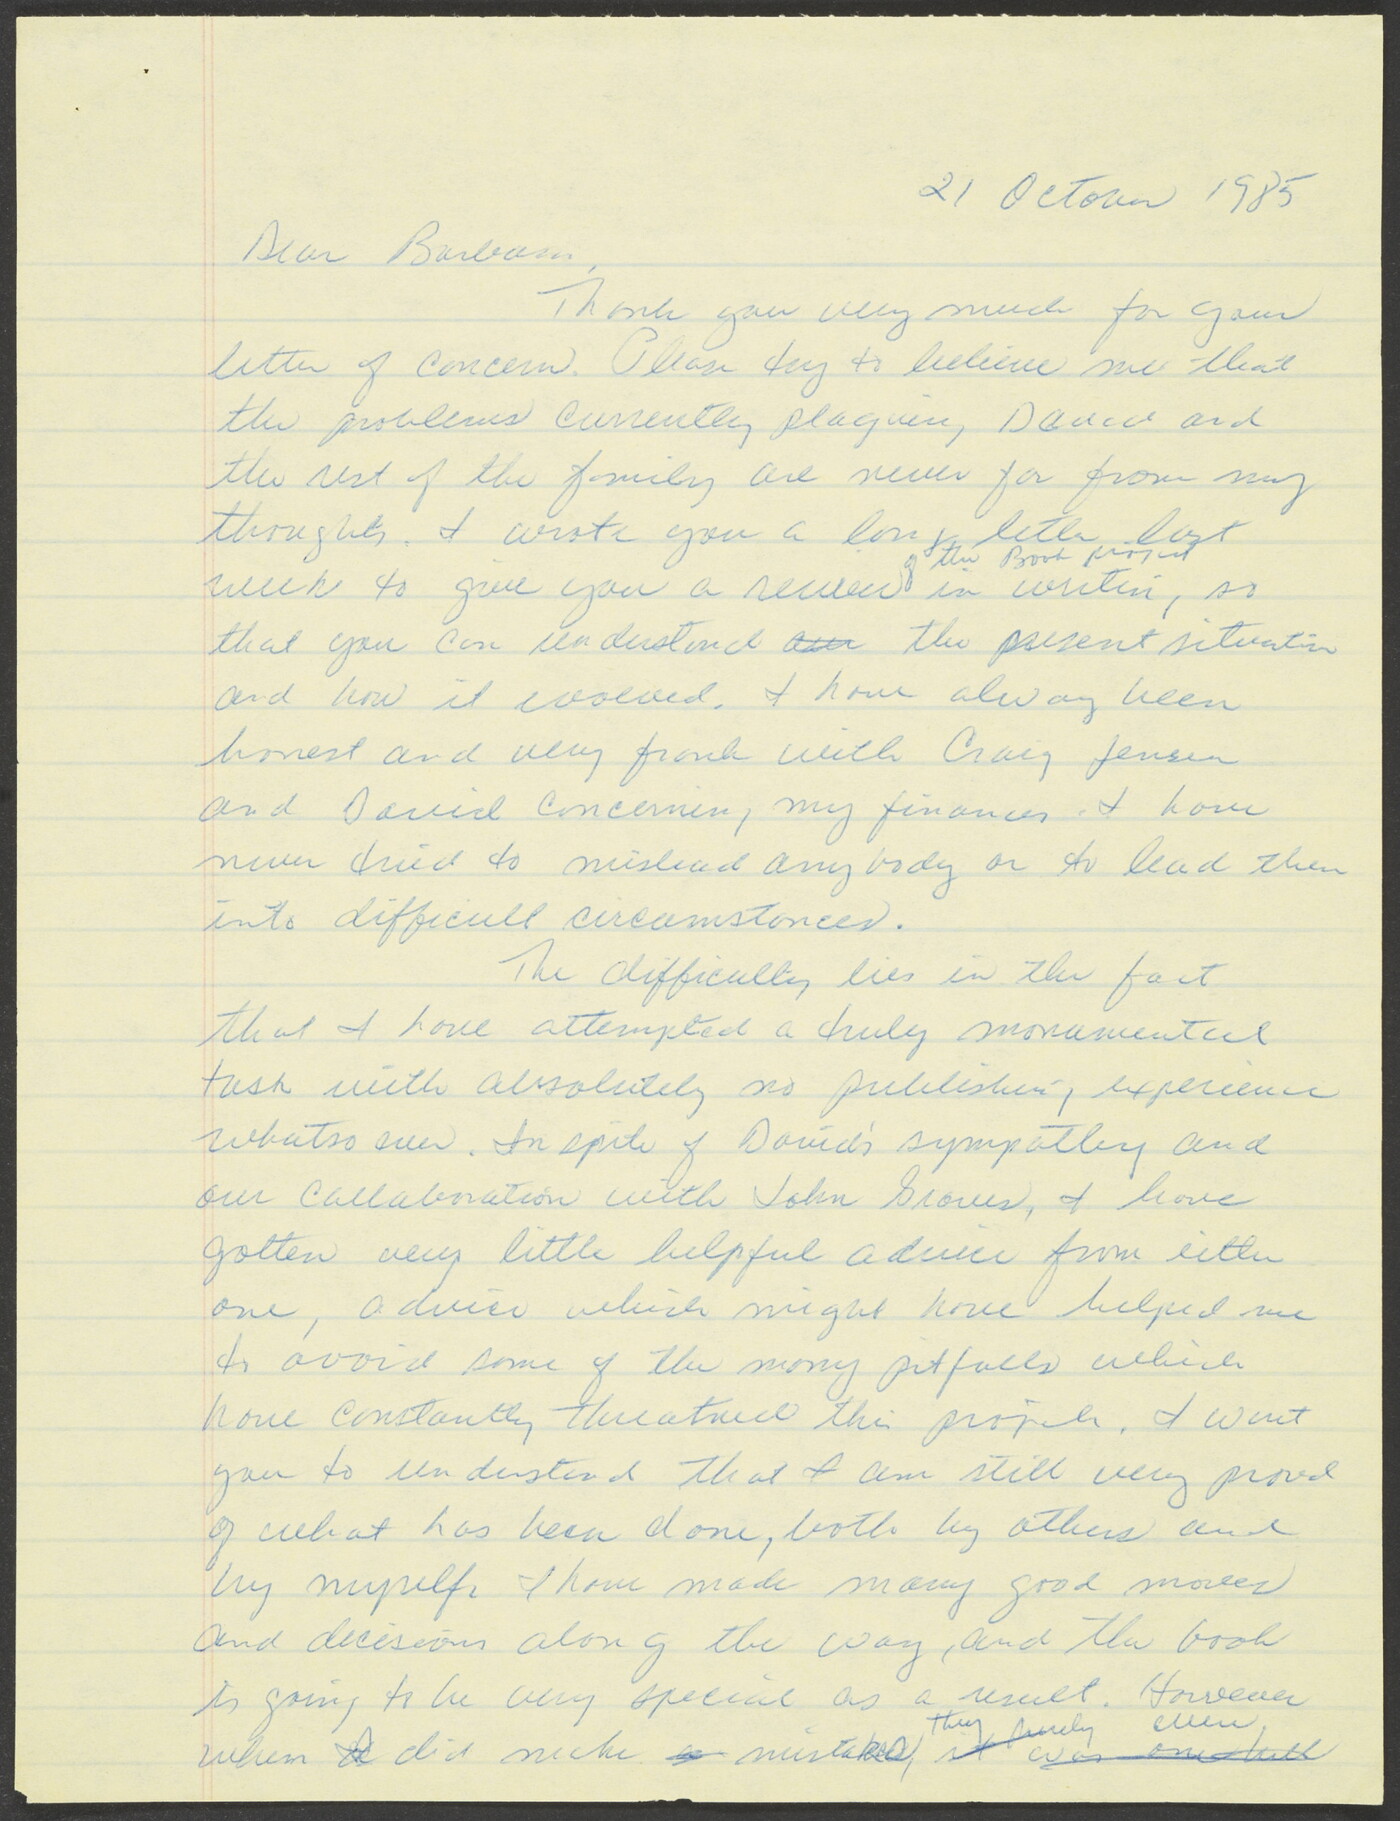 21 October 1985
Dear Barbara,
Thank you very much for your
letter of concern. Please try to believe me that
the problems currently plaguing David and
the rest of the family are never far from my
thoughts. I wrote you a long letter last
of the Book project
week to give you a review in writing, so
that you can understand the present situation
and how it evolved. I have alway been
honest and very frank with Craig Jensen
and David concerning my finances. I have
never tried to mislead anybody or to lead them
into difficult circumstances.
The difficulty lies in the fact
that I have attempted a truly monumental
task with absolutely no publishing experience
whatso ever. In spite of David's sympathy and
our collaboration with John Graves, I have
gotten very little helpful advice from either
one, advice which might have helped me
to avoid some of the many pitfalls which
have constantly threatned this project. I want
you to understand that I am still very proud
of what has been done, both by others and
by myself. I have made many good moves
and decisions along the way, and the book
is going to be very special as a result. However
they surely were
when I did make a mistakes, it was one hell